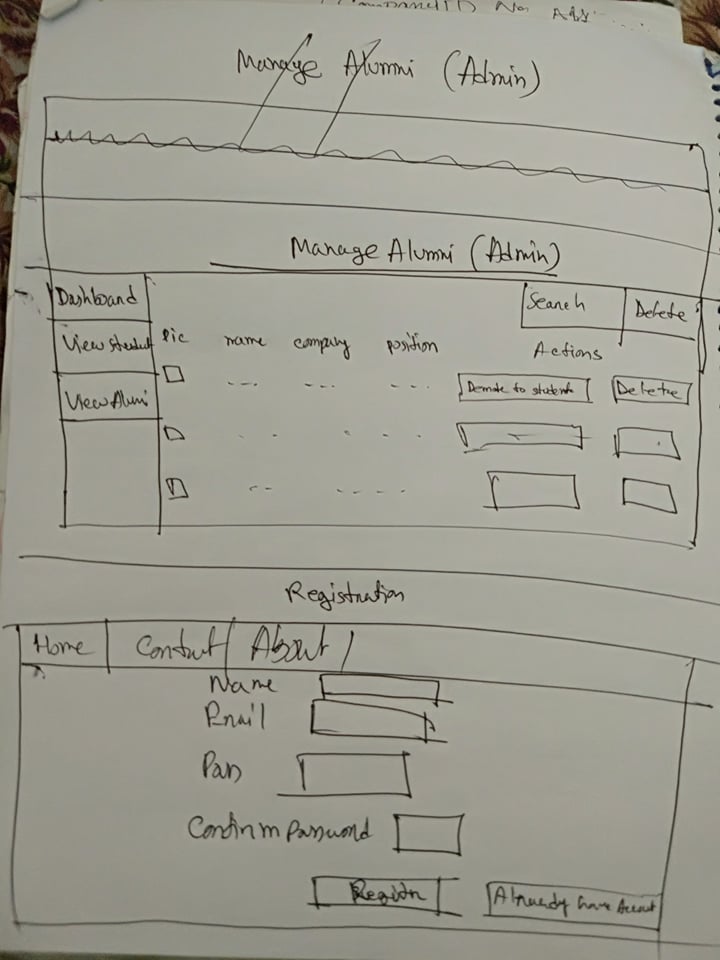 No
Manage Alumni (Admin)
Manage Alumni (Admin)
Dashboard Search Delete
View student Pic name company position Actions
Demote to student Delete
View Alumni
Registration
Home Contact About
Name
Email
Pass
Confirm password
Register Already have Account